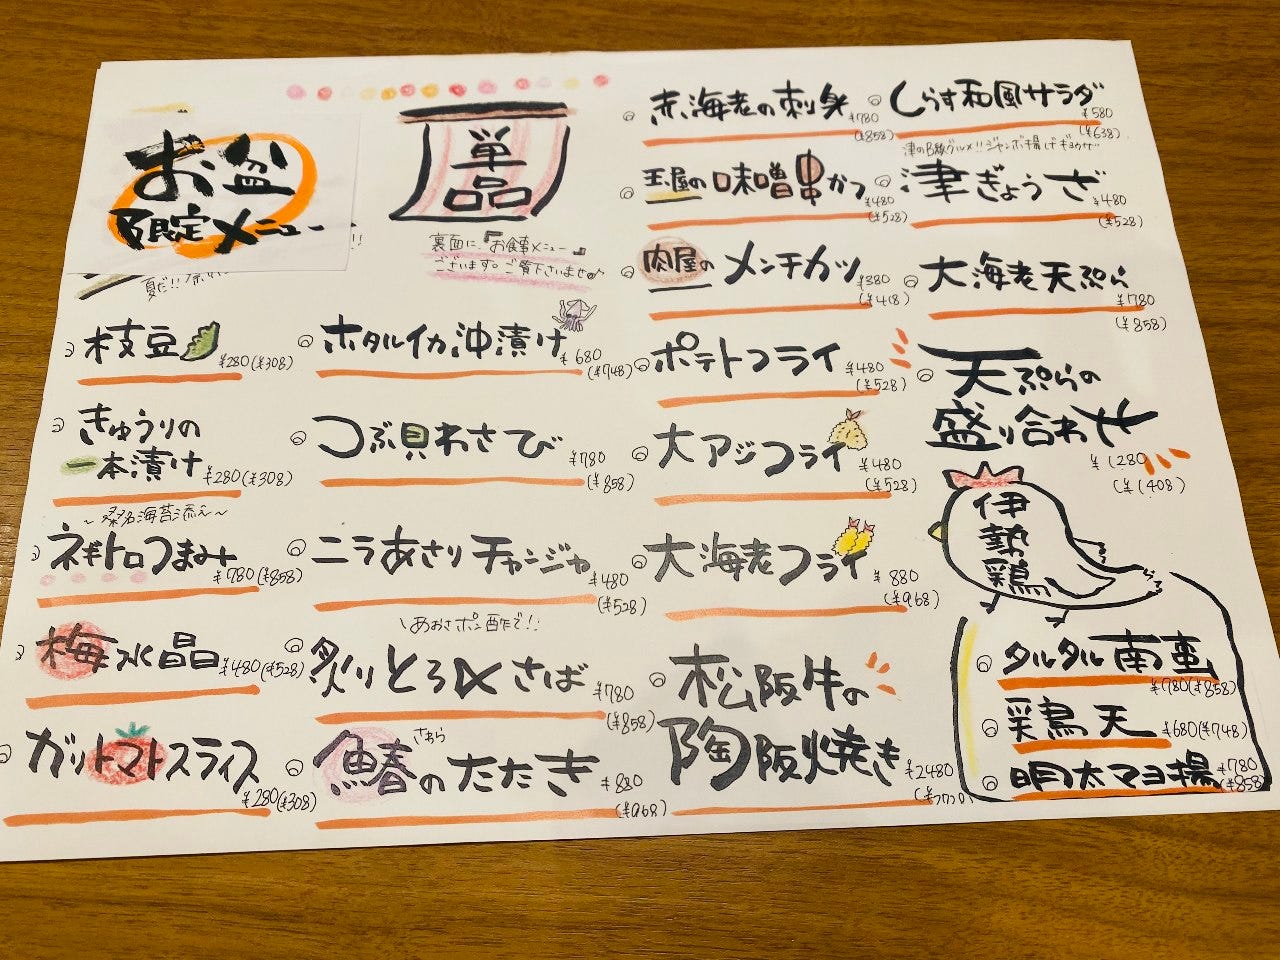 お盆
限定メニュー
単品
裏面に『お食事メニュー』
ございます。ご覧下さいませ♪
枝豆
¥280(¥308)
きゅうりの
一本漬け
¥280(¥308)
～桑名海苔添え～
ネギトロつまみ
¥780(¥858)
梅水晶
¥480(¥528)
ガリトマトスライス
¥280(¥308)
ホタルイカ沖漬け
¥680
(¥748)
つぶ貝わさび
¥780
(¥858)
ニラあさりチャンジャ
¥480
(¥528)
\あおさポン酢で!!
炙りとろ〆さば
¥780
(¥858)
さわら
鰆のたたき
¥880
(¥968)
赤海老の刺身
¥780
(¥858)
玉屋の味噌串かつ
¥480
(¥528)
肉屋のメンチカツ
¥380
(¥418)
ポテトフライ
¥480
(¥528)
大アジフライ
¥480
(¥528)
大海老フライ
¥880
(¥968)
松阪牛の
陶板焼き
¥2480
しらす和風サラダ
¥580
(¥638)
津のB級グルメ!!ジャンボ揚げギョウザ
津ぎょうざ
¥480
(¥528)
大海老天ぷら
¥780
(¥858)
天ぷらの
盛り合わせ
¥1280
(¥1408)
伊勢鶏
タルタル南蛮
¥780(¥858)
鶏天
¥680(¥748)
明太マヨ揚
¥780
(¥858)